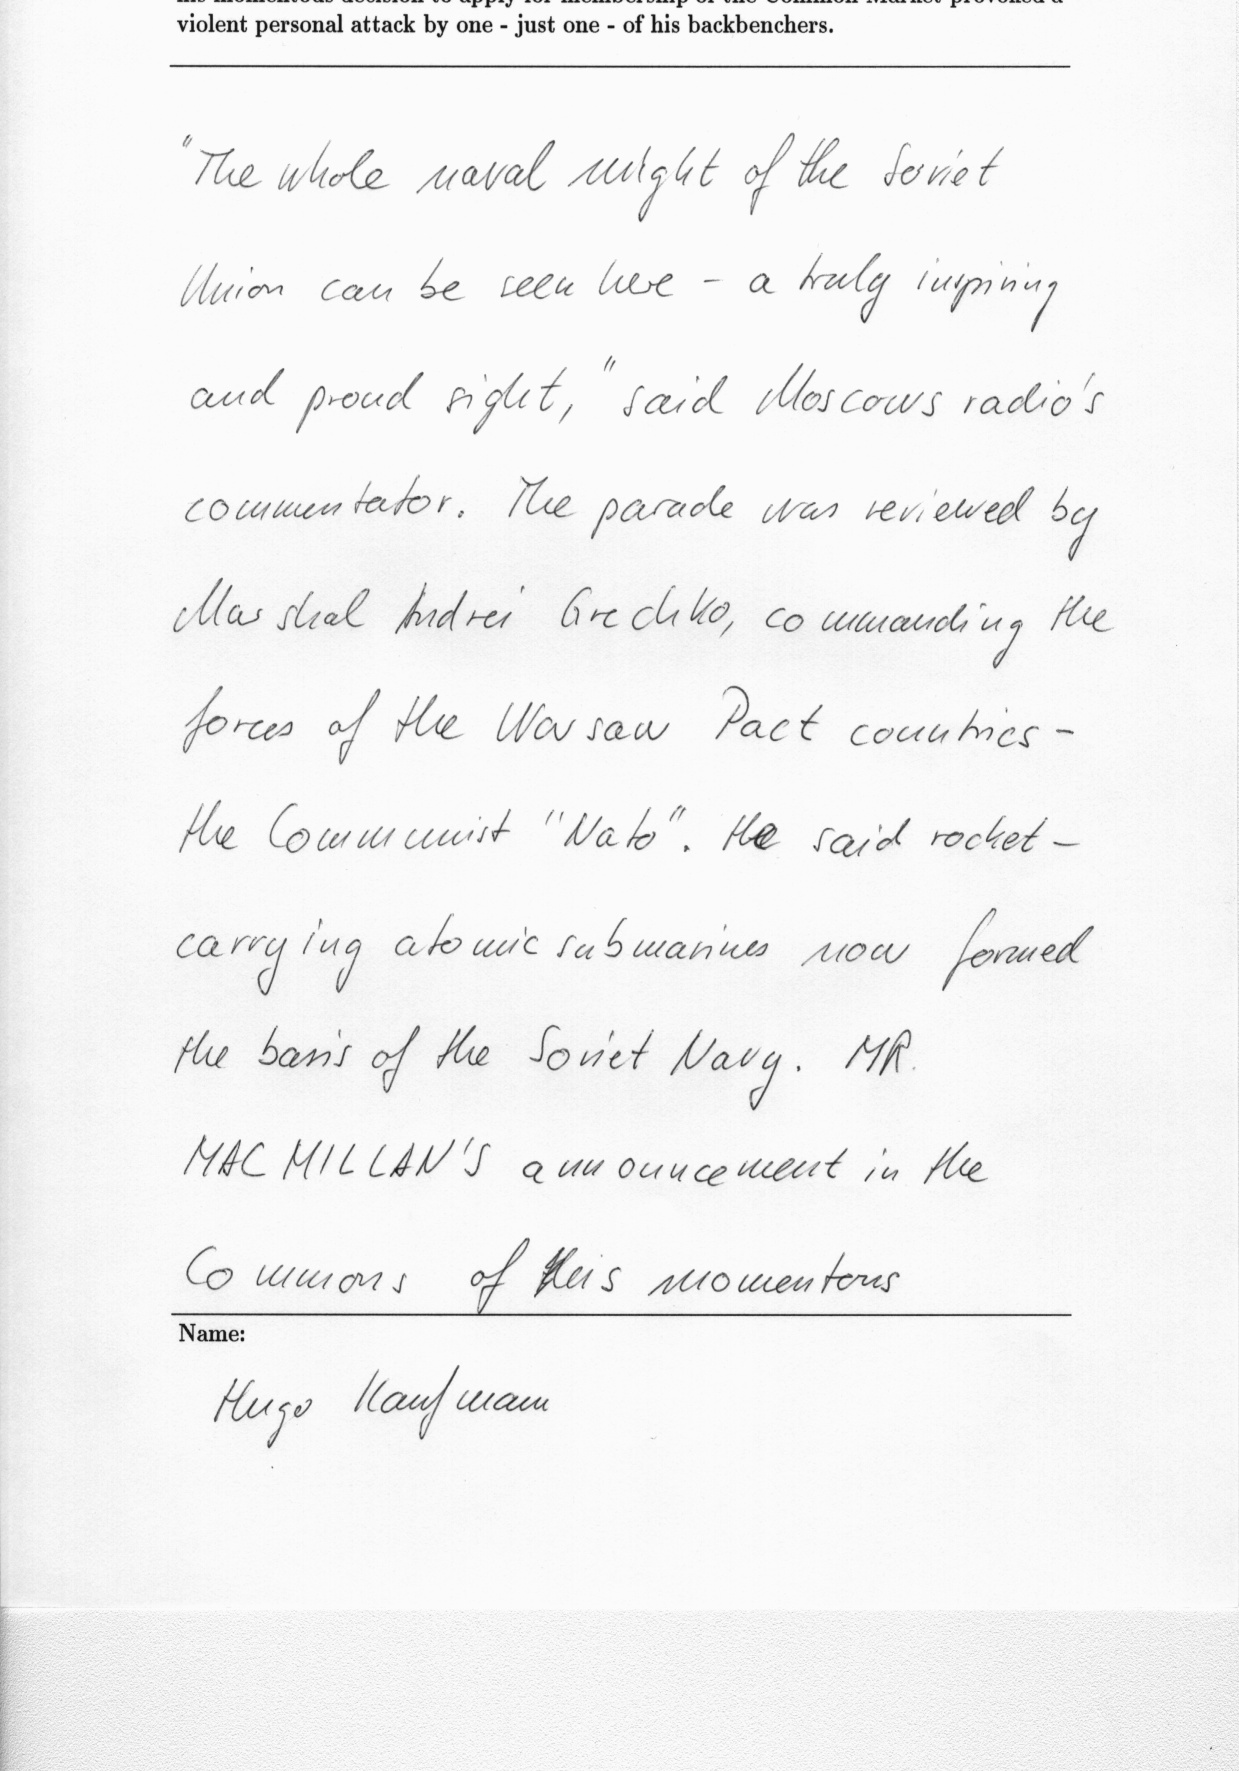 his momentous decision to apply for membership of the Common Market provoked a
violent personal attack by one - just one - of his backbenchers.
"The whole naval might of the Soviet
Union can be seen here - a truly inspiring
and proud sight," said Moscows radio's
commentator. The parade was reviewed by
Marshal Andrei Grechko, commanding the
forces of the Warsaw Pact countries -
the Communist "Nato". He said rocket-
carrying atomic submarines now formed
the basis of the Soviet Navy. MR.
MACMILLAN'S announcement in the
Commons of his momentous
Name:
Hugo Kaufmann